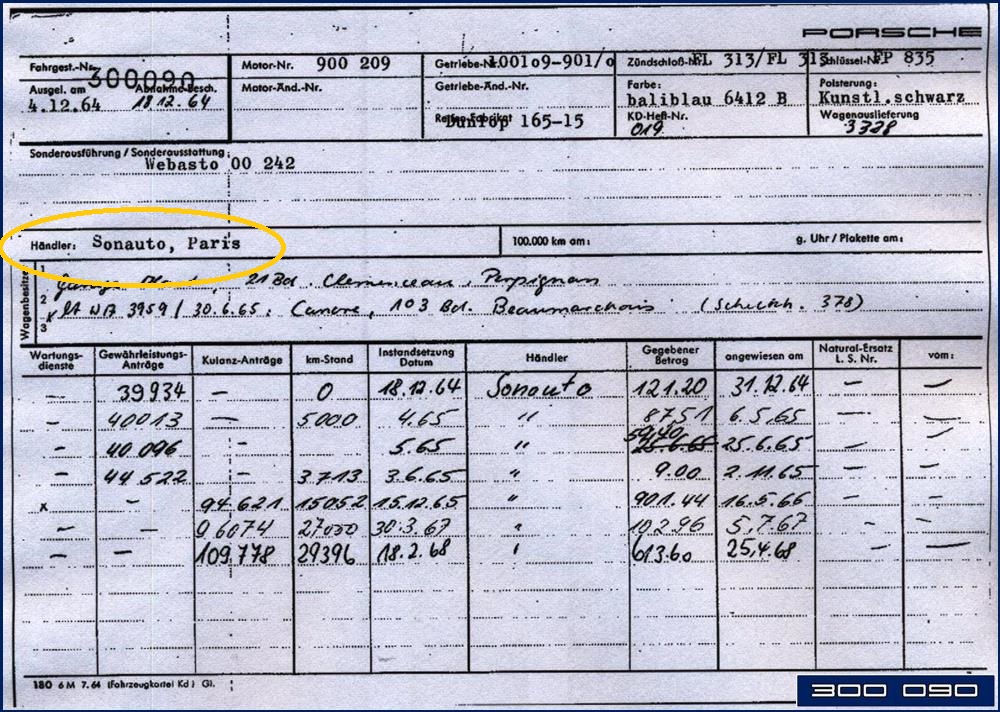 PORSCHE
Fahrgest.-Nr. 300090 Motor-Nr. 900 209 Getriebe-Nr. 100109-901/0 Zündschloß-Nr. FL 313/FL 313 Schlüssel-Nr. FP 835
Ausgel. am 4.12.64 Abnahme-Besch. 18.12.64 Motor-Änd.-Nr. Getriebe-Änd.-Nr. Farbe: baliblau 6412 B Polsterung: Kunstl.schwarz
Reifen-Fabrikat Dunlop 165-15 KD-Heft-Nr. 019 Wagenauslieferung 3328
Sonderausführung / Sonderausstattung:
Webasto 00 242
Händler: Sonauto, Paris 100.000 km am: g. Uhr / Plakette am:
Wagenbesitzer
1 21 Bd. Clemenceau, Perpignan
2 WA 3959 / 30.6.65: 103 Bd. Beaumarchais 378)
3
Wartungsdienste Gewährleistungs-Anträge Kulanz-Anträge km-Stand Instandsetzung Datum Händler Gegebener Betrag angewiesen am Natural-Ersatz L. S. Nr. vom:
— 39934 — 0 18.12.64 Sonauto 121.20 31.12.64 — —
— 40013 — 5000 4.65 " 87.51 6.5.65 — —
— 40096 - 5.65 " 59.40 25.6.65 — —
— 44522 - 3713 3.6.65 " 9.00 2.11.65 — —
x - 94621 15052 15.12.65 " 901.44 16.5.66 - —
— — 96074 27000 30.3.67 " 102.96 5.7.67 - —
— — 109.778 29396 18.2.68 " 613.60 25.4.68 — —
180 6 M 7. 64 (Fahrzeugkartei Kd) Gl.
300 090